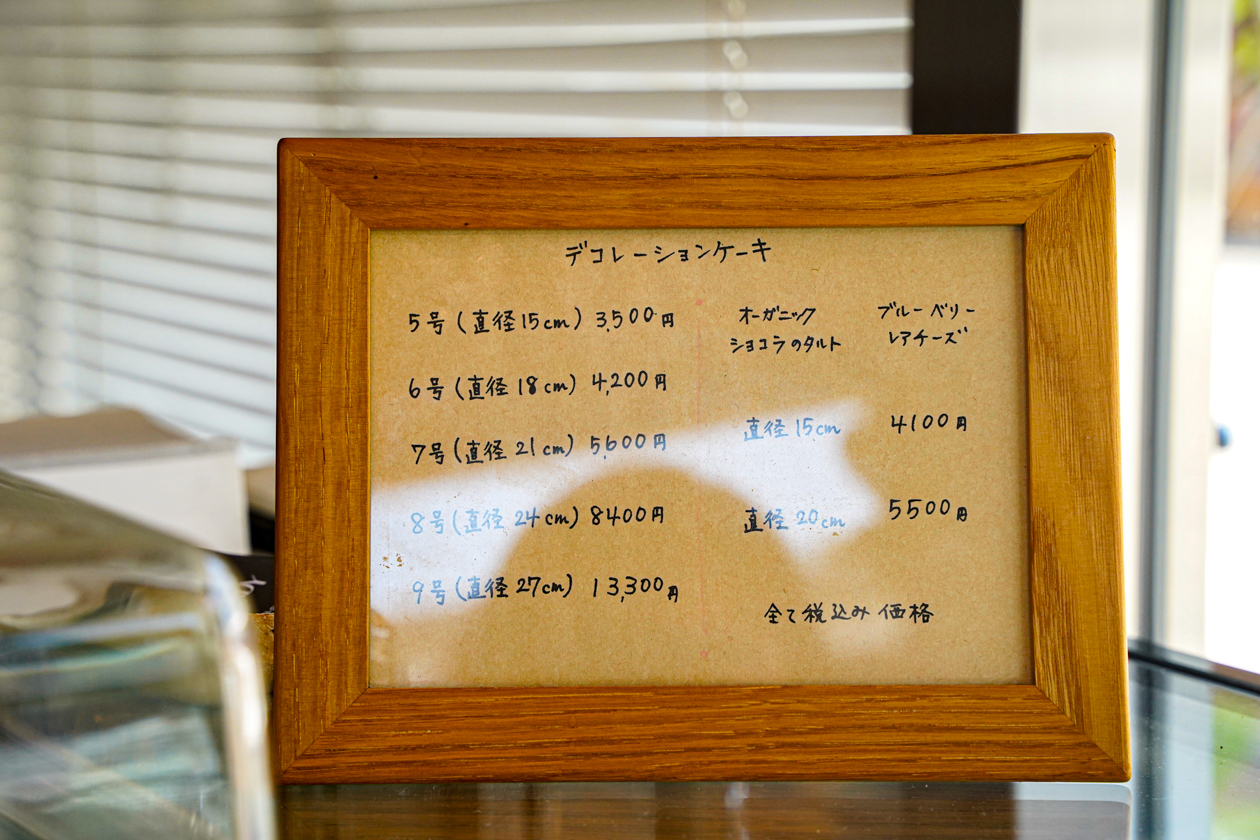 デコレーションケーキ
5号(直径15cm) 3,500円
6号(直径18cm) 4,200円
7号(直径21cm) 5,600円
8号(直径24cm) 8400円
9号(直径27cm) 13,300円
オーガニック
ショコラのタルト
ブルーベリー
レアチーズ
直径15cm 4100円
直径20cm 5500円
全て税込み価格